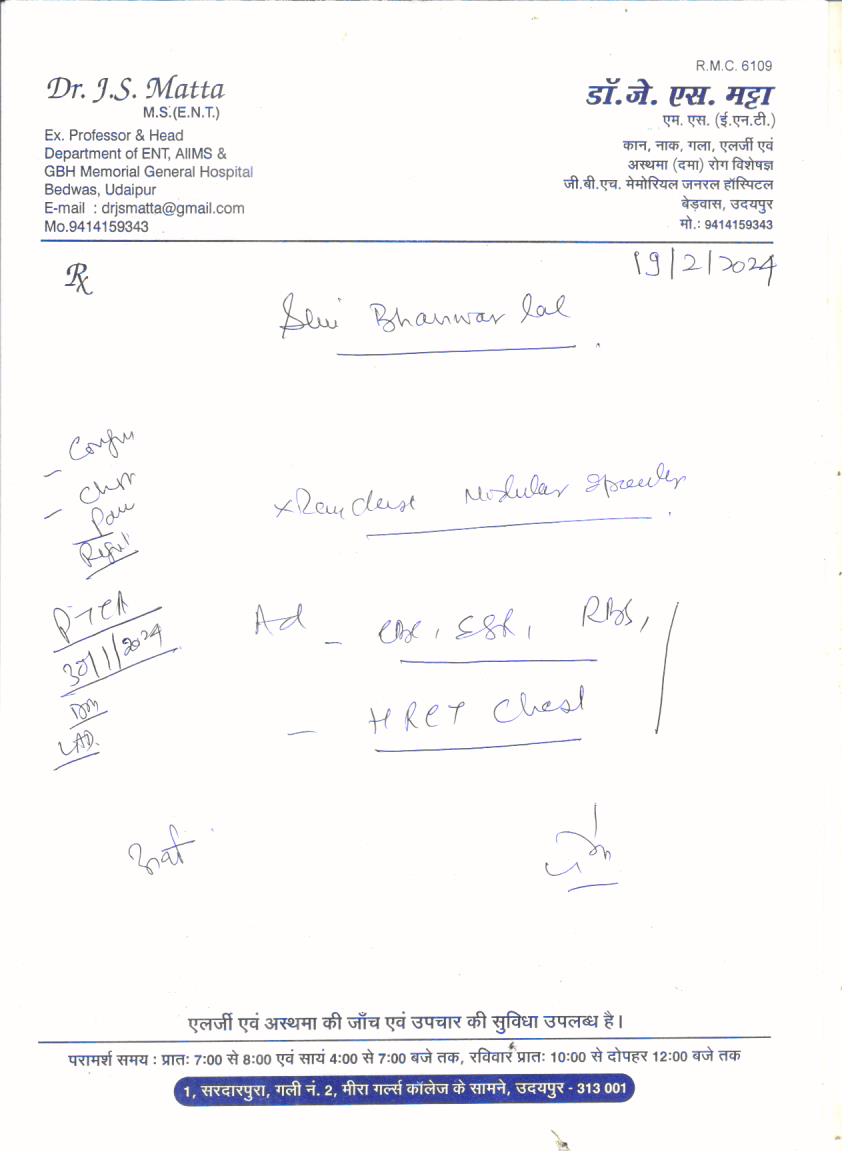 R.M.C. 6109
Dr. J.S. Matta
M.S.(E.N.T.)
Ex. Professor & Head
Department of ENT, AIIMS &
GBH Memorial General Hospital
Bedwas, Udaipur
E-mail : drjsmatta@gmail.com
Mo.9414159343
डॉ.जे. एस. मट्टा
एम. एस. (ई.एन.टी.)
कान, नाक, गला, एलर्जी एवं
अस्थमा (दमा) रोग विशेषज्ञ
जी.बी.एच. मेमोरियल जनरल हॉस्पिटल
बेड़वास, उदयपुर
मो.: 9414159343
Rx
19/2/2024
Shri Bhanwar lal
Nodular
PTCA
30/1/2024
DM
LAD.
Ad - CBC, ESR, RBS,
- HRCT Chest
एलर्जी एवं अस्थमा की जाँच एवं उपचार की सुविधा उपलब्ध है।
परामर्श समय : प्रातः 7:00 से 8:00 एवं सायं 4:00 से 7:00 बजे तक, रविवार प्रातः 10:00 से दोपहर 12:00 बजे तक
1, सरदारपुरा, गली नं. 2, मीरा गर्ल्स कॉलेज के सामने, उदयपुर - 313 001